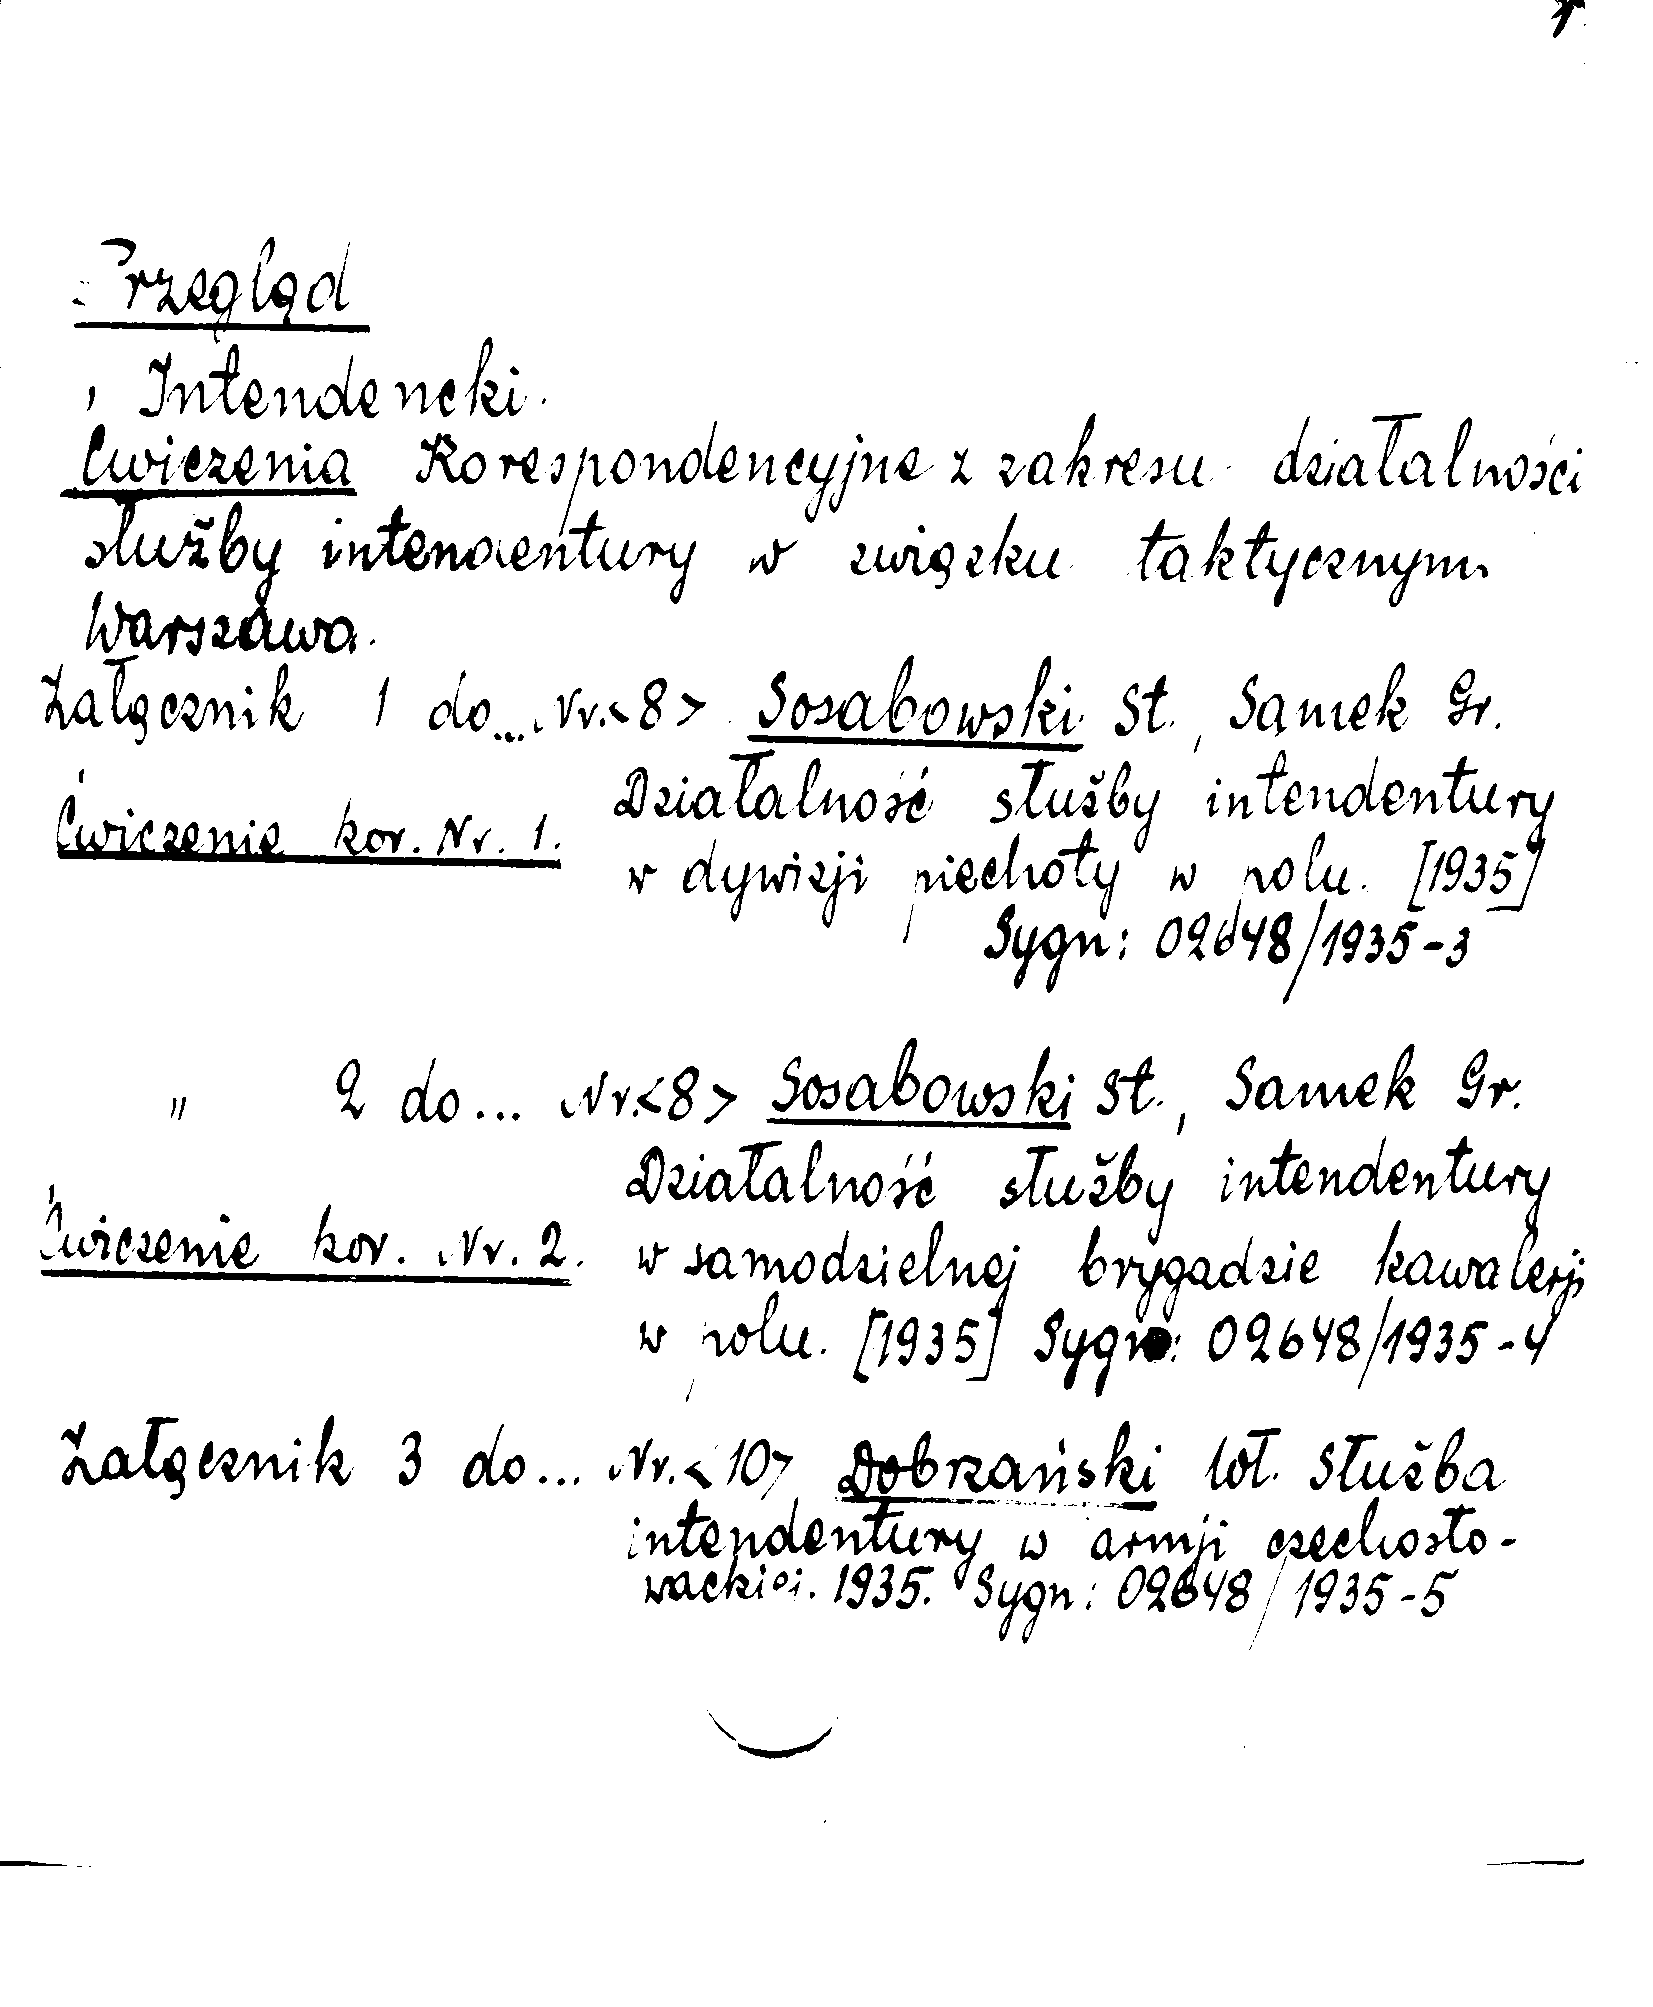 Przegląd
Intendencki.
Ćwiczenia Korespondencyjne z zakresu działalności
służby intendentury w związku taktycznym
Warszawa.
Załącznik 1 do... Nr.<8> Sosabowski St., Samek Gr.
Działalność służby intendentury
Ćwiczenie kor. Nr. 1.
w dywizji piechoty w polu. [1935]
Sygn: 02648/1935-3
" 2 do... Nr.<8> Sosabowski St., Samek Gr.
Działalność służby intendentury
Ćwiczenie kor. Nr. 2.
w samodzielnej brygadzie kawalerji
w polu. [1935] Sygn: 02648/1935-4
Załącznik 3 do... Nr.<10> Dobrzański Wł. Służba
intendentury w armji czechosło-
wackiej. 1935. Sygn: 02648/1935-5